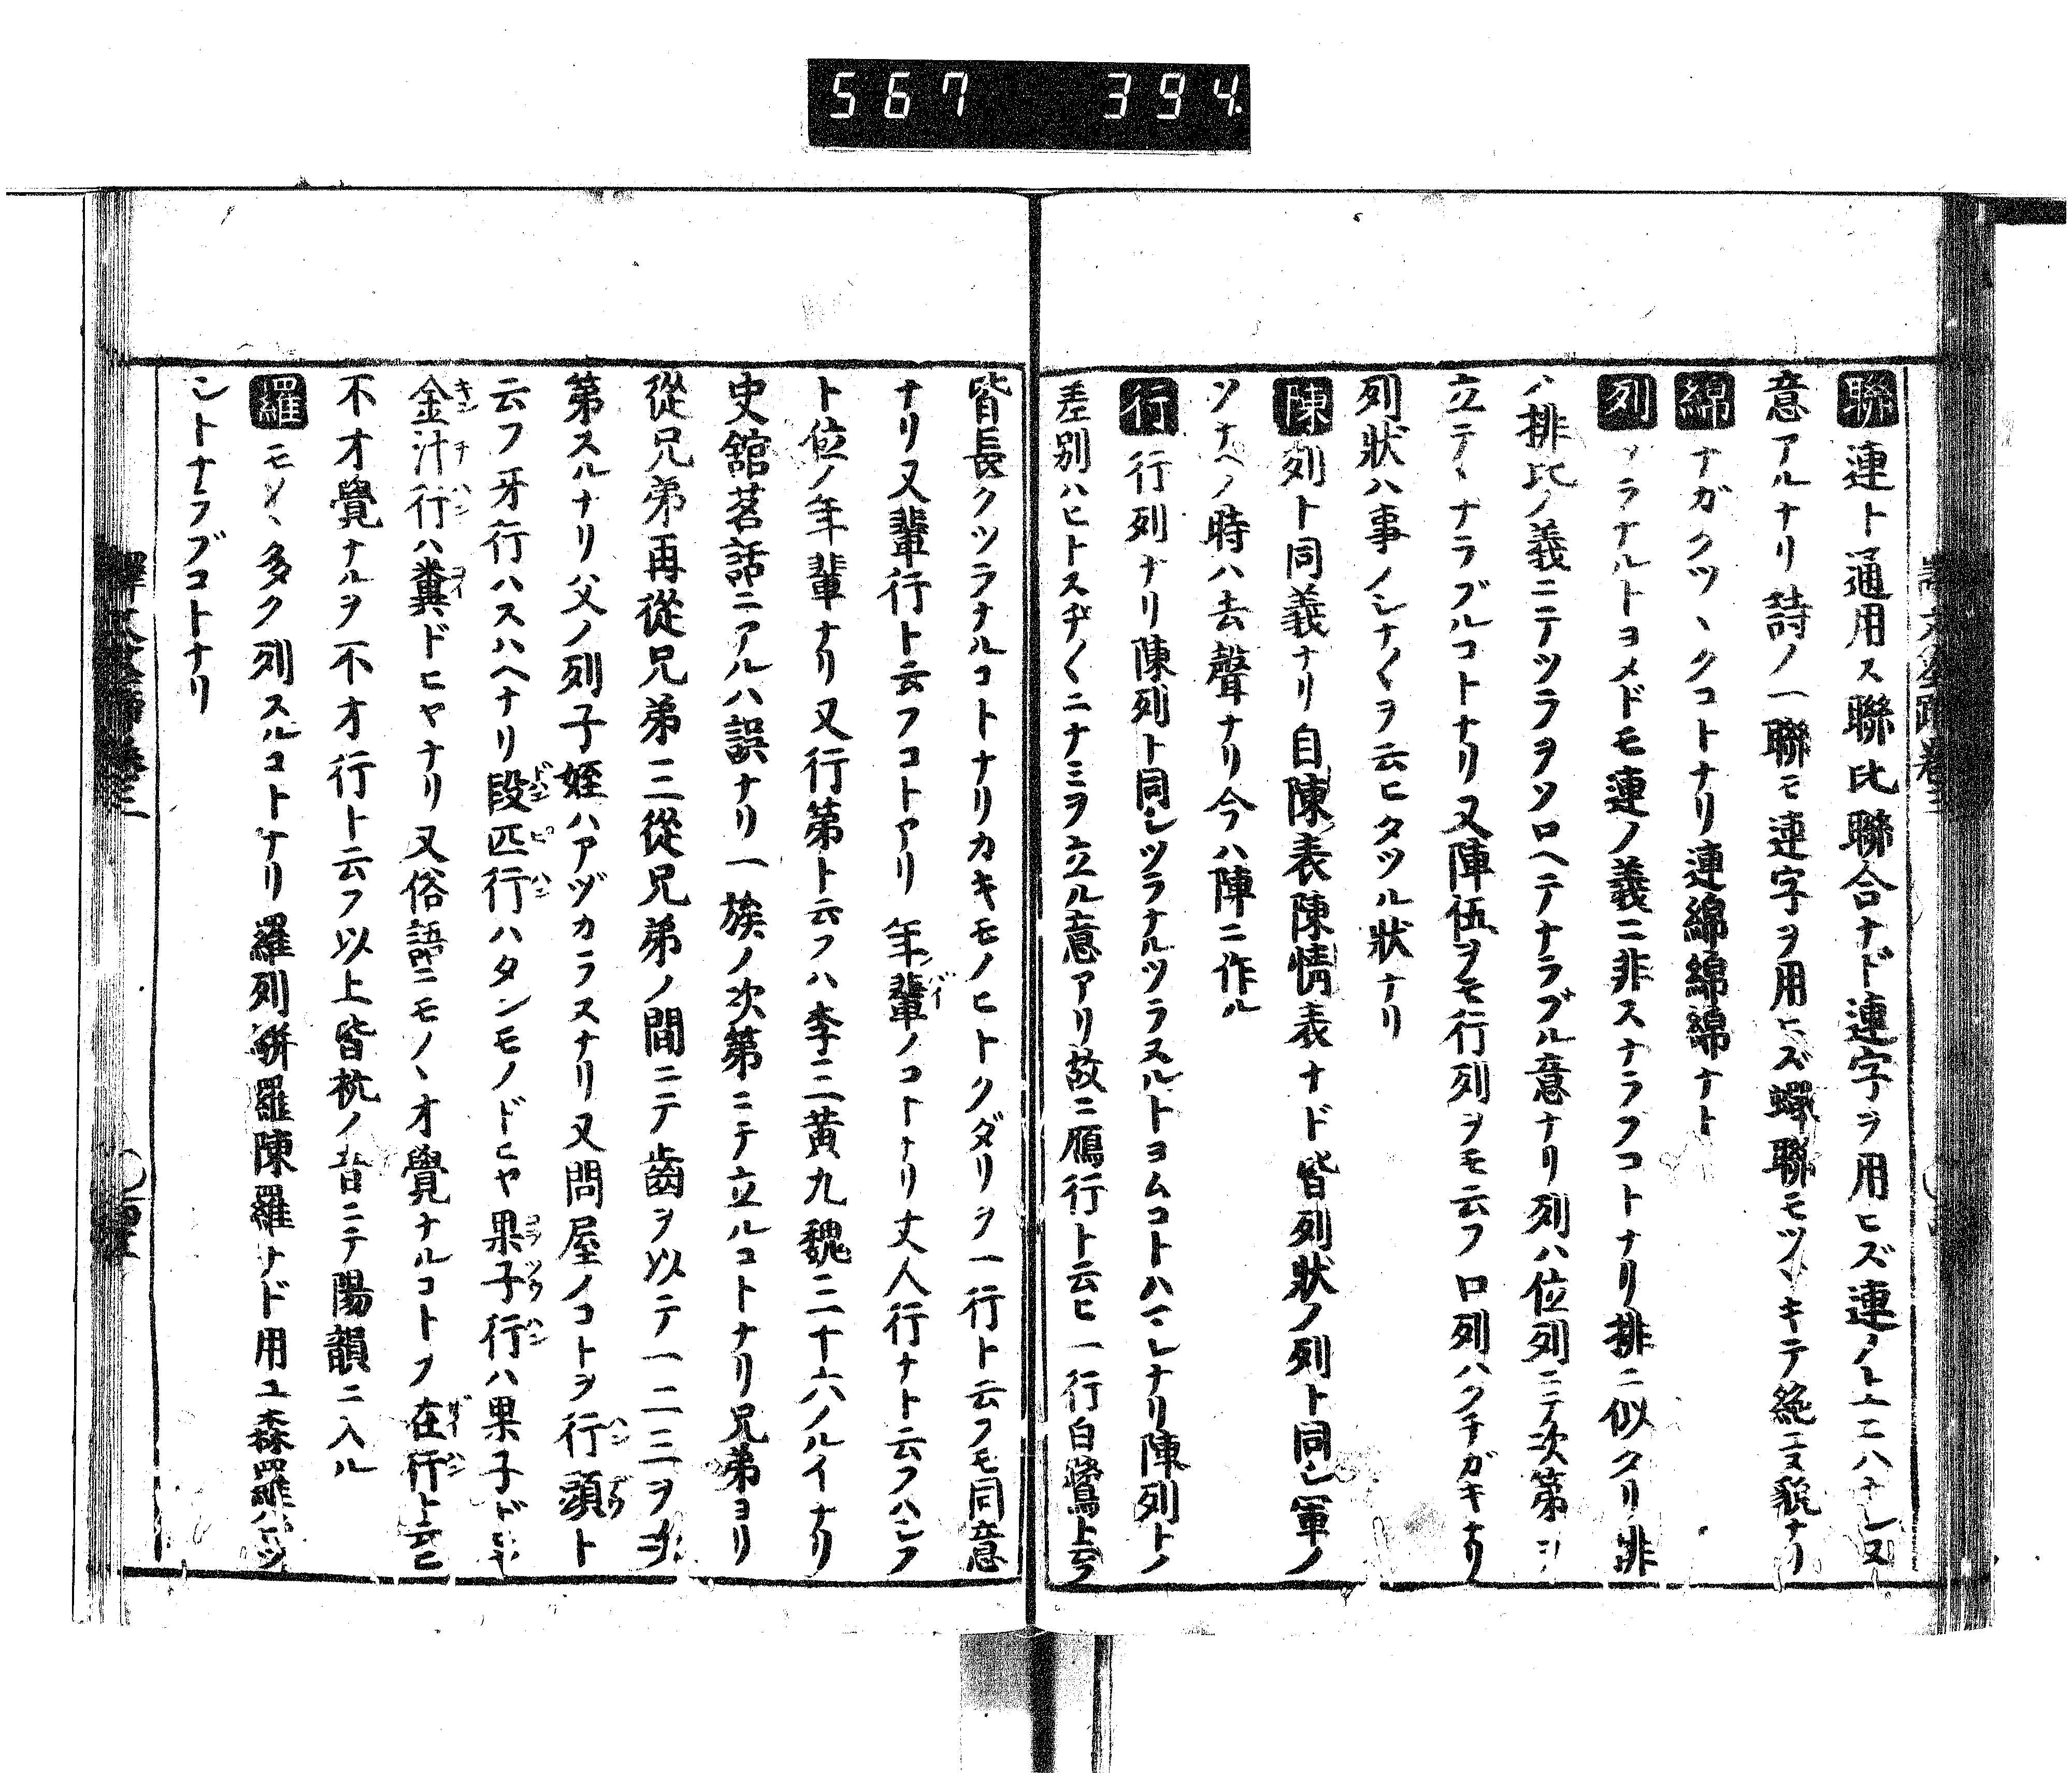 567 394
聯 連ト通用ス聯比聯合ナド連字ヲ用ヒズ連ノト上ニハナシ又
意アルナリ詩ノ一聯モ連字ヲ用ヒズ蟬聯モツヽキテ絶エヌ貌ナリ
綿 ナガクツヽクコトナリ連綿綿綿ナト
列 ツラナルトヨメドモ連ノ義ニ非スナラフコトナリ排ニ似タリ排
ハ排比ノ義ニテツラヲソロヘテナラブル意ナリ列ハ位列ニテ次第ヲ
立テヽナラブルコトナリ又陣伍ヲモ行列ヲモ云フ口列ハクチガキナリ
列狀ハ事ノシナ〱ヲ云ヒタツル狀ナリ
陳 列ト同義ナリ自陳表陳情表ナド皆列狀ノ列ト同シ軍ノ
ソナヘノ時ハ去聲ナリ今ハ陣ニ作ル
行 行列ナリ陳列ト同シツラナルツラヌルトヨムコトハナシナリ陳列トノ
差別ハヒトスヂ〱ニナミヲ立ル意アリ故ニ鴈行ト云ヒ一行白鷺ト云
皆長クツラナルコトナリカキモノヒトクダリヲ一行ト云フモ同意
ナリ又輩行ト云フコトアリ年輩ノコトナリ丈人行ナト云フハシフ
ト位ノ年輩ナリ又行第ト云フハ李二黄九魏三十六ノルイナリ
史舘茗話ニアルハ誤ナリ一族ノ次第ニテ立ルコトナリ兄弟ヨリ
從兄弟再從兄弟三從兄弟ノ間ニテ齒ヲ以テ一二三ヲ
第スルナリ父ノ列子姪ハアヅカラスナリ又問屋ノコトヲ行頭ト
云フ牙行ハスハヘナリ段匹行ハタンモノドヒヤ果子行ハ果子ドヒヤ
金汁行ハ糞ドヒヤナリ又俗語ニモノヽ才覺ナルコトヲ在行ト云ヒ
不才覺ナルヲ不才行ト云フ以上皆杭ノ音ニテ陽韻ニ入ル
羅 モノヽ多ク列スルコトナリ羅列駢羅陳羅ナド用ユ森羅ハシツ
シトナラブコトナリ